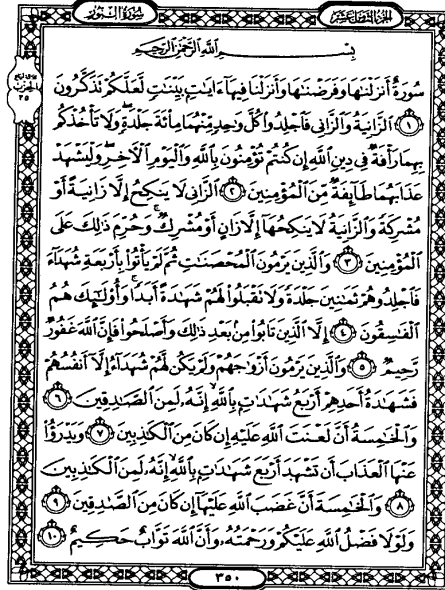 سُورَةُ النُّورِ
الجُزْءُ الثَّامِنَ عَشَرَ
بِسْمِ اللَّهِ الرَّحْمَٰنِ الرَّحِيمِ
سُورَةٌ أَنزَلْنَٰهَا وَفَرَضْنَٰهَا وَأَنزَلْنَا فِيهَآ ءَايَٰتٍۭ بَيِّنَٰتٍ لَّعَلَّكُمْ تَذَكَّرُونَ
١ ٱلزَّانِيَةُ وَٱلزَّانِى فَٱجْلِدُوا۟ كُلَّ وَٰحِدٍ مِّنْهُمَا مِا۟ئَةَ جَلْدَةٍ وَلَا تَأْخُذْكُم
بِهِمَا رَأْفَةٌ فِى دِينِ ٱللَّهِ إِن كُنتُمْ تُؤْمِنُونَ بِٱللَّهِ وَٱلْيَوْمِ ٱلْءَاخِرِ وَلْيَشْهَدْ
عَذَابَهُمَا طَآئِفَةٌ مِّنَ ٱلْمُؤْمِنِينَ ٢ ٱلزَّانِى لَا يَنكِحُ إِلَّا زَانِيَةً أَوْ
مُشْرِكَةً وَٱلزَّانِيَةُ لَا يَنكِحُهَآ إِلَّا زَانٍ أَوْ مُشْرِكٌ وَحُرِّمَ ذَٰلِكَ عَلَى
ٱلْمُؤْمِنِينَ ٣ وَٱلَّذِينَ يَرْمُونَ ٱلْمُحْصَنَٰتِ ثُمَّ لَمْ يَأْتُوا۟ بِأَرْبَعَةِ شُهَدَآءَ
فَٱجْلِدُوهُمْ ثَمَٰنِينَ جَلْدَةً وَلَا تَقْبَلُوا۟ لَهُمْ شَهَٰدَةً أَبَدًا وَأُو۟لَٰٓئِكَ هُمُ
ٱلْفَٰسِقُونَ ٤ إِلَّا ٱلَّذِينَ تَابُوا۟ مِنۢ بَعْدِ ذَٰلِكَ وَأَصْلَحُوا۟ فَإِنَّ ٱللَّهَ غَفُورٌ
رَّحِيمٌ ٥ وَٱلَّذِينَ يَرْمُونَ أَزْوَٰجَهُمْ وَلَمْ يَكُن لَّهُمْ شُهَدَآءُ إِلَّآ أَنفُسُهُمْ
فَشَهَٰدَةُ أَحَدِهِمْ أَرْبَعُ شَهَٰدَٰتٍۭ بِٱللَّهِ إِنَّهُۥ لَمِنَ ٱلصَّٰدِقِينَ ٦
وَٱلْخَٰمِسَةُ أَنَّ لَعْنَتَ ٱللَّهِ عَلَيْهِ إِن كَانَ مِنَ ٱلْكَٰذِبِينَ ٧ وَيَدْرَؤُا۟
عَنْهَا ٱلْعَذَابَ أَن تَشْهَدَ أَرْبَعَ شَهَٰدَٰتٍۭ بِٱللَّهِ إِنَّهُۥ لَمِنَ ٱلْكَٰذِبِينَ
٨ وَٱلْخَٰمِسَةَ أَنَّ غَضَبَ ٱللَّهِ عَلَيْهَآ إِن كَانَ مِنَ ٱلصَّٰدِقِينَ ٩
وَلَوْلَا فَضْلُ ٱللَّهِ عَلَيْكُمْ وَرَحْمَتُهُۥ وَأَنَّ ٱللَّهَ تَوَّابٌ حَكِيمٌ ١٠
٣٥٠
الحِزْب
٣٥